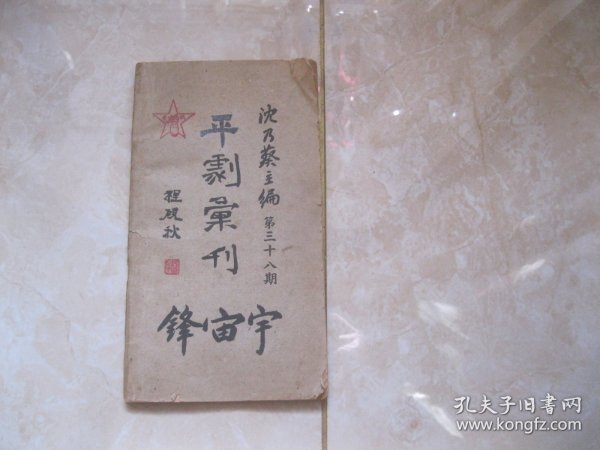 沈乃葵主编
第三十八期
平劇彙刊
程砚秋
鋒宙宇
孔夫子旧书网
www.kongfz.com